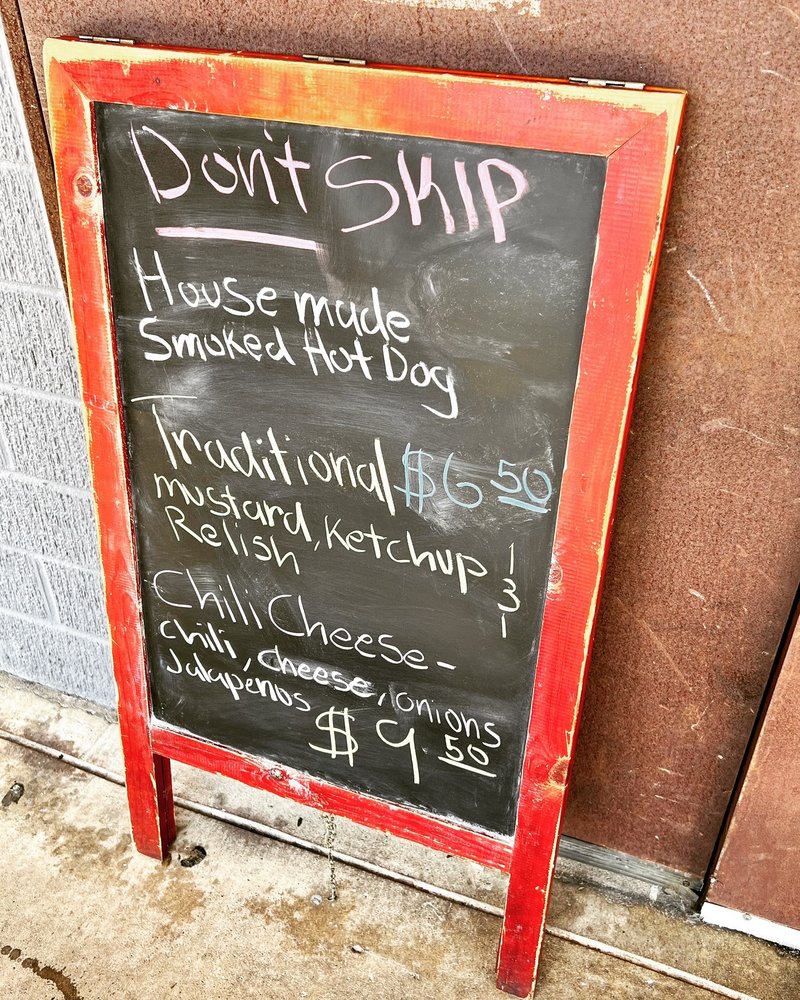 Don't SKIP
House made
Smoked Hot Dog
Traditional $6 50
mustard, Ketchup
Relish
Chili Cheese-
chili, cheese, onions
Jalapenos
$9.50